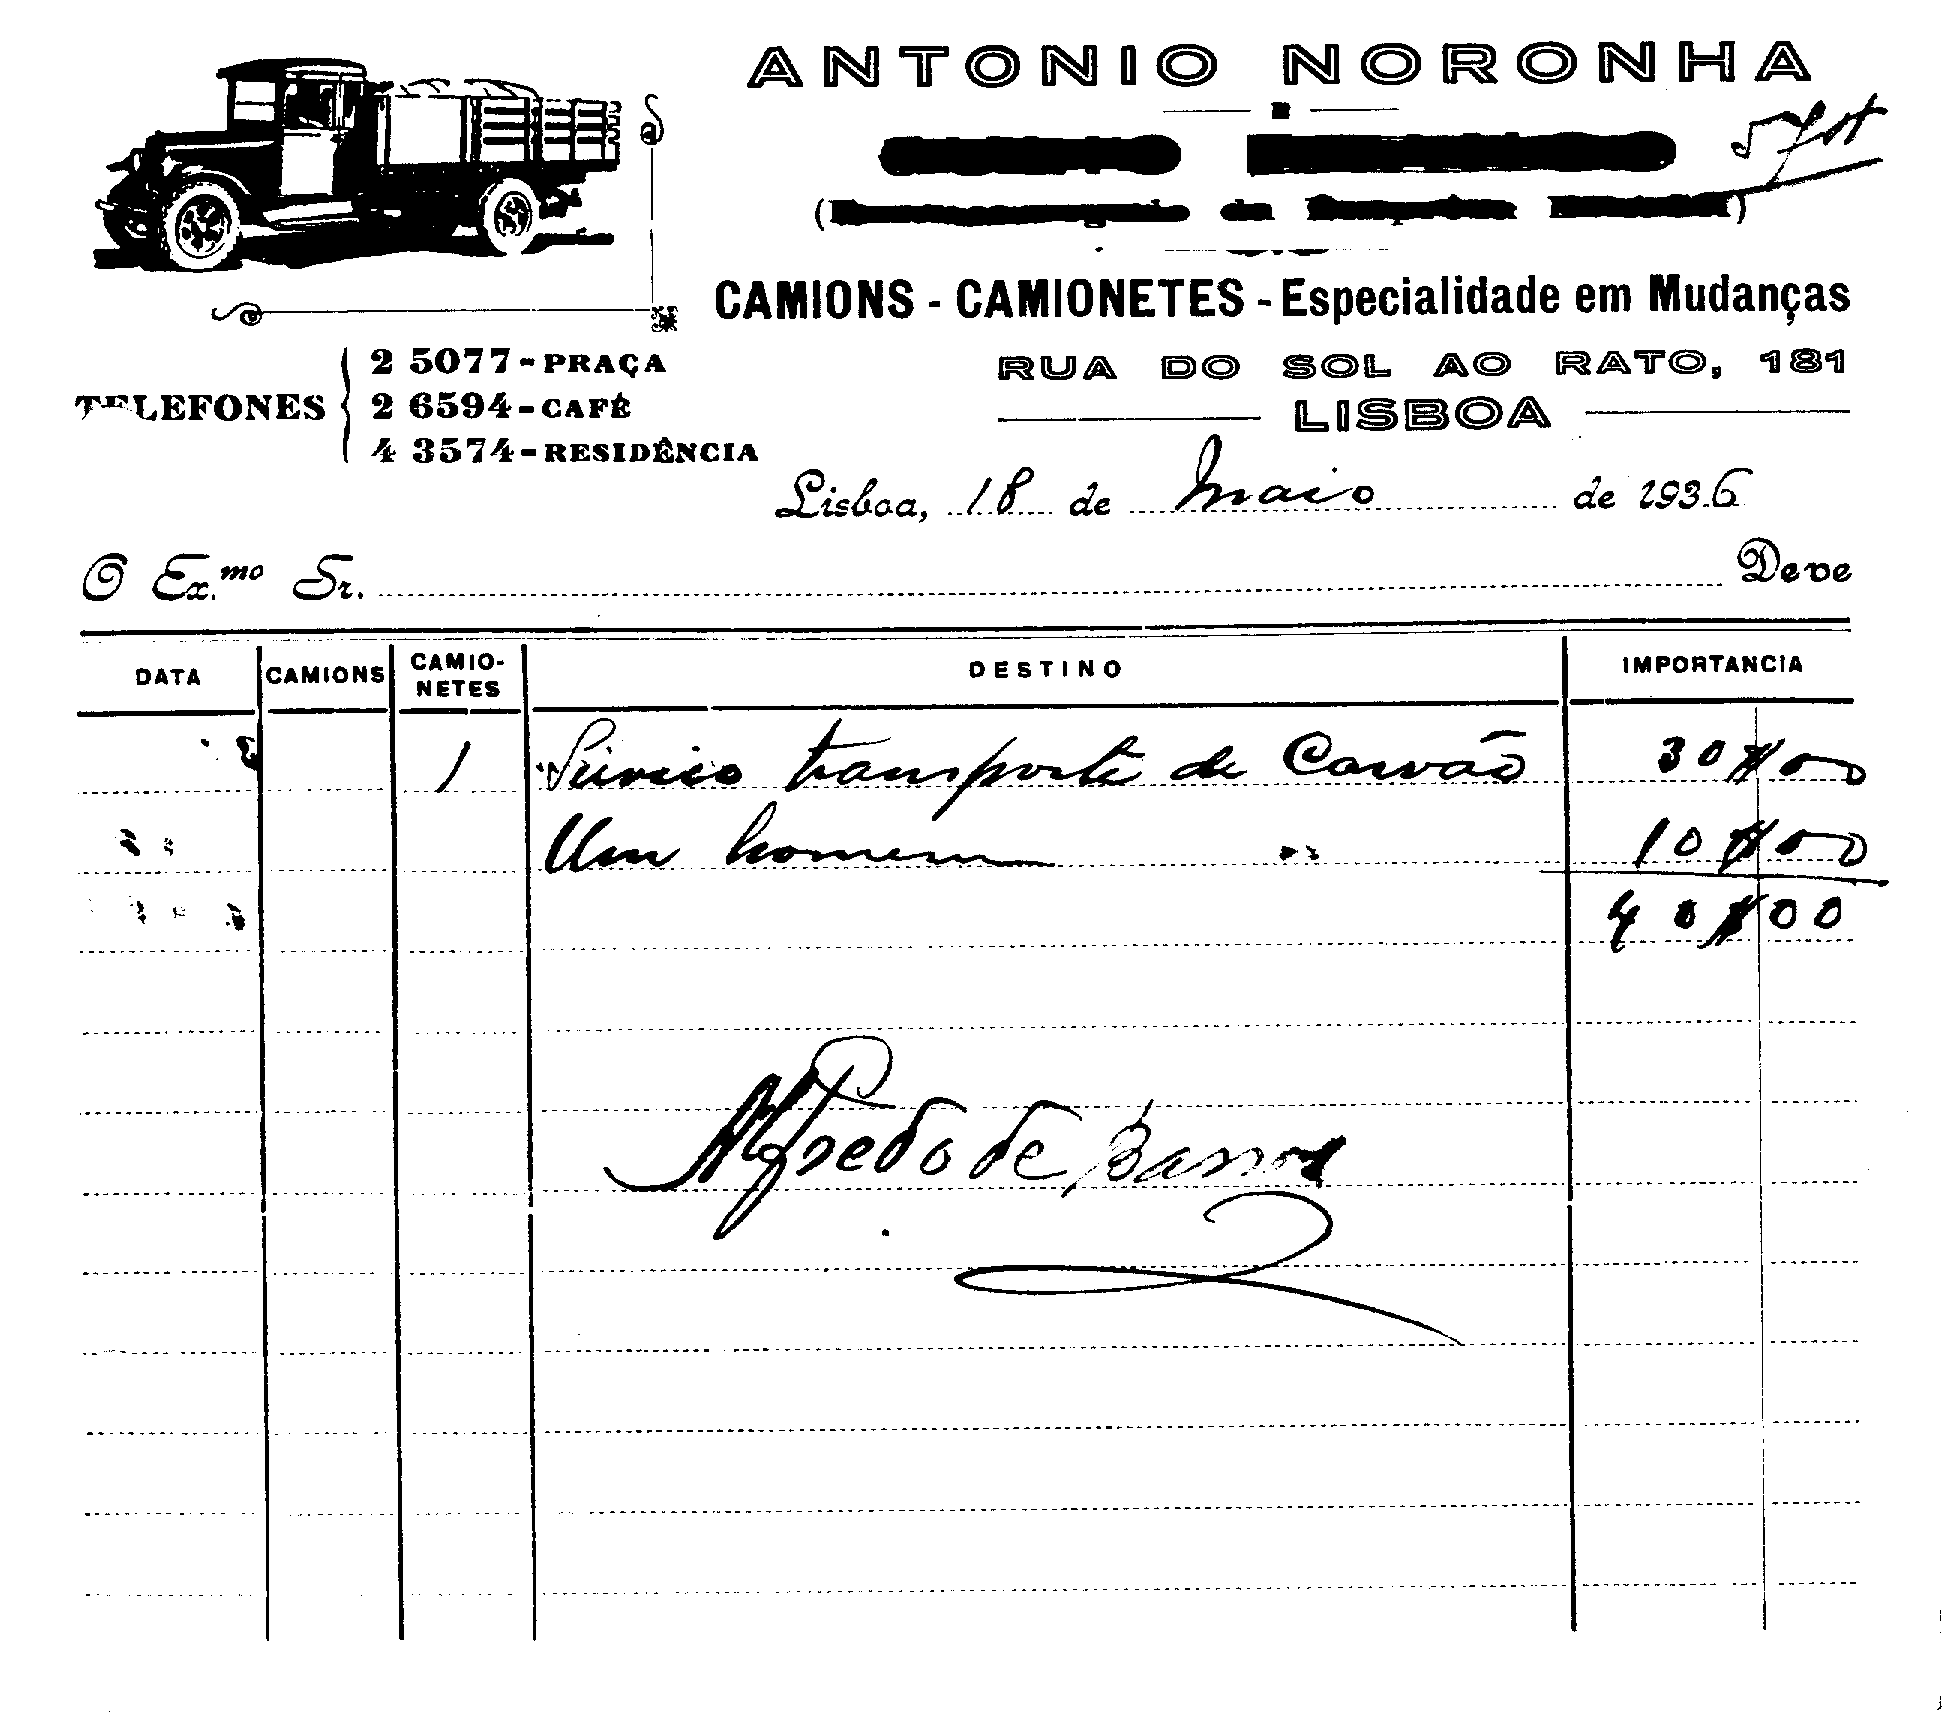 ANTONIO NORONHA
CAMIONS - CAMIONETES - Especialidade em Mudanças
RUA DO SOL AO RATO, 181
LISBOA
TELEFONES
2 5077 - PRAÇA
2 6594 - CAFÉ
4 3574 - RESIDÊNCIA
Lisboa, 18 de Maio de 1936
O Ex.mo Sr. Deve
DATA CAMIONS CAMIO-NETES DESTINO IMPORTANCIA
1 transporte de Carvão 30$00
Um homem 10$00
40$00
Alfredo de Barros